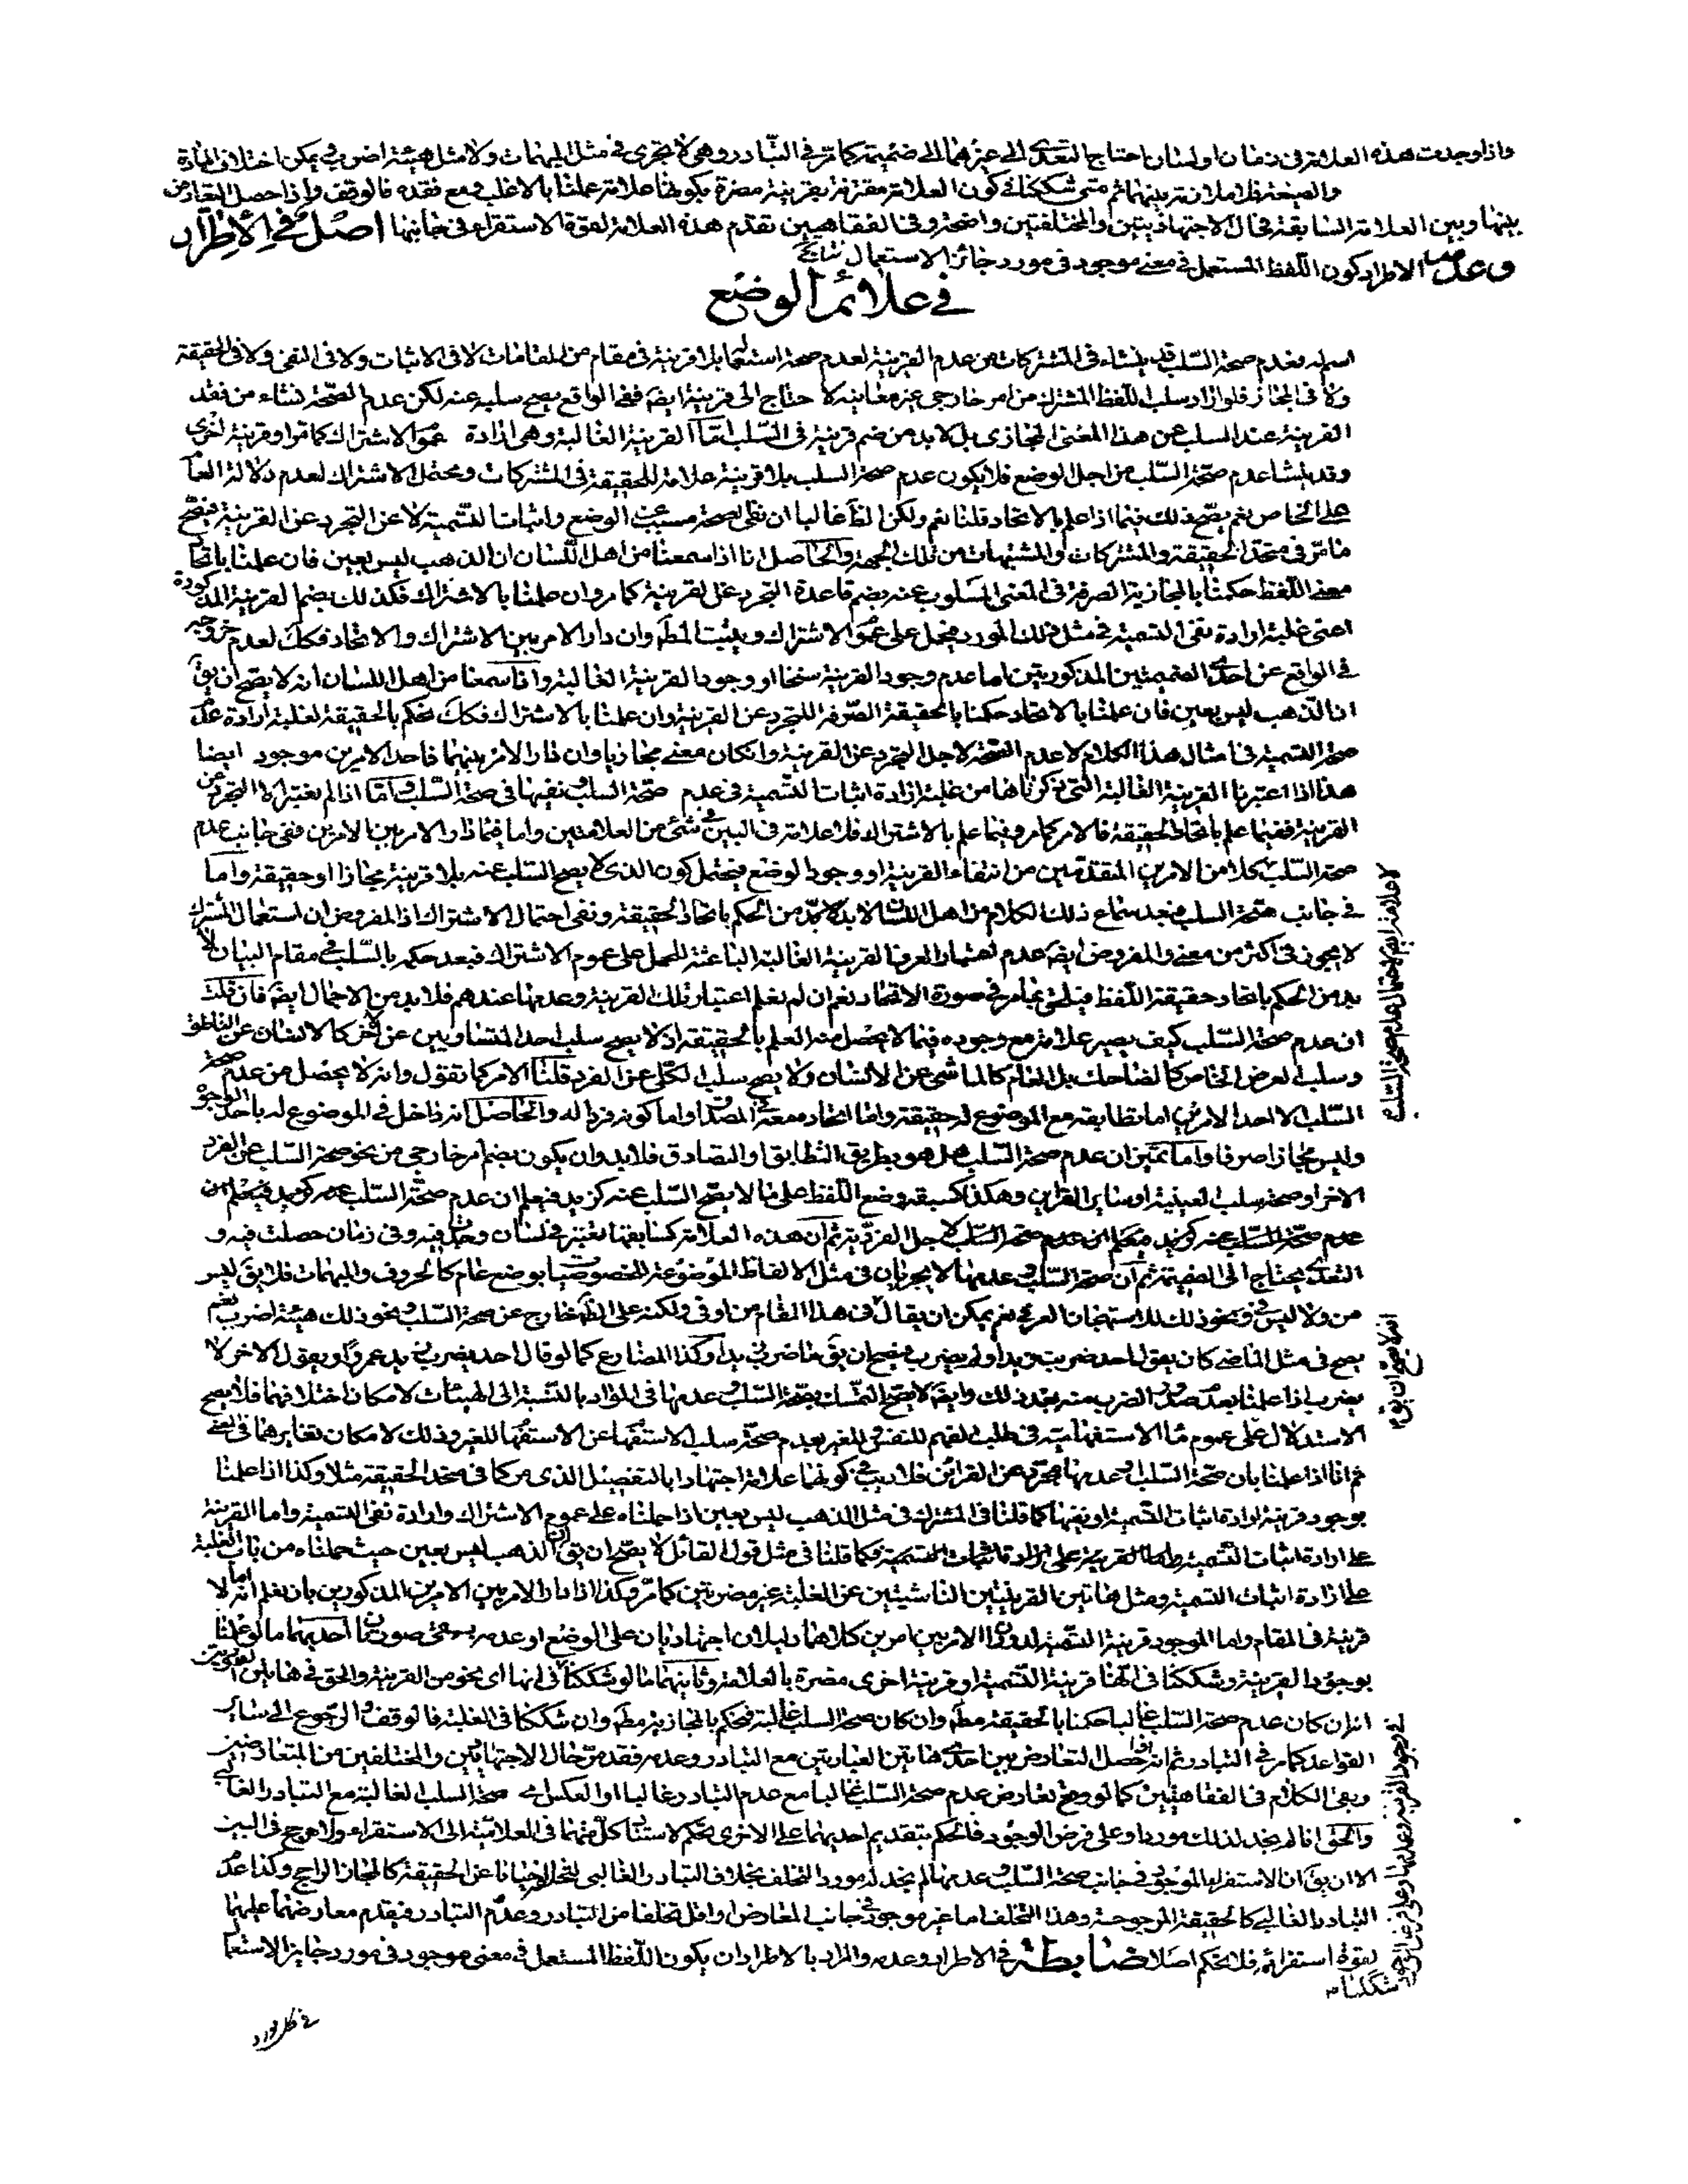 واذا وجدت هذه العلامة فى زمان او لسان احتاج التعدى الى غيرهما الى ضميمة كما مر فى التبادر وهى لا تجرى فى مثل المبهمات ولا مثل هيئة اضرب فيمكن اختلاف المادة
والصيغة فلا ملازمة بينهما ثم متى شككنا فى كون العلامة مقترنة بقرينة مضرة بكونها علامة عملنا بالاغلب ومع فقده فالوقف واذا حصل التعارض
بينها وبين العلامة السابقة فحال الاجتهاديتين والمختلفتين واضحة وفى الفقاهيتين تقدم هذه العلامة لقوة الاستقراء فى جانبها اصل فى الاطراد
وعدمه الاطراد كون اللفظ المستعمل فى معنى موجود فى مورد جائز الاستعمال نتايج
فى علائم الوضع
فعدم صحة السلب قد ينشاء فى المشتركات من عدم القرينة لعدم صحة استعمالها بلا قرينة فى مقام من المقامات لا فى الاثبات ولا فى النفى ولا فى الحقيقة
ولا فى المجاز فلو اراد سلب اللفظ المشترك من امر خارجى غير معانيه لاحتاج الى قرينة ايضه ففى الواقع يصح سلبه عنه لكن عدم الصحة نشاء من فقد
القرينة عند السلب عن هذا المعنى المجازى بل لابد من ضم قرينة فى السلب اما القرينة الغالبة وهى ارادة عموم الاشتراك كما مر او قرينة اخرى
وقد ينشا عدم صحة السلب من اجل الوضع فلا يكون عدم صحة السلب بلا قرينة علامة للحقيقة فى المشتركات ومحتمل الاشتراك لعدم دلالة العام
على الخاص نعم يصح ذلك فيما اذا علم بالاتحاد قلنا نعم ولكن الظ غالبا ان نفى الصحة مسبب عن الوضع واثباتا للتسمية لا عن التجرد عن القرينة فيصح
ما مر فى متحد الحقيقة والمشتركات والمشتبهات من تلك الجهة والحاصل انا اذا سمعنا من اهل اللسان ان الذهب ليس بعين فان علمنا باتحاد
معنى اللفظ حكمنا بالمجازية الصرفة فى المعنى المسلوب عنه بضم قاعدة التجرد عن القرينة كما مر وان علمنا بالاشتراك فكذلك بضم القرينة المذكورة
اعنى غلبة ارادة نفى التسمية فى مثل ذلك المورد فيحمل على عموم الاشتراك ويثبت المط وان دار الامر بين الاشتراك والاتحاد فكك لعدم خروجه
فى الواقع عن احدى الضميمتين المذكورتين اما عدم وجود القرينة سنخا او وجود القرينة الغالبة واذا سمعنا من اهل اللسان انه لا يصح ان يق
ان الذهب ليس بعين فان علمنا بالاتحاد حكمنا بالحقيقة الصرفه للتجرد عن القرينة وان علمنا بالاشتراك فكك نحكم بالحقيقة لغلبة ارادة عدم
صحة التسمية فى امثال هذا الكلام لا عدم الصحة لاجل التجرد عن القرينة وان كان معنى مجازيا وان دار الامر بينهما فاحد الامرين موجود ايضا
هذا اذا اعتبرنا القرينة الغالبة التى ذكرناها من غلبة ارادة اثبات التسمية فى عدم صحة السلب ونفيها فى صحة السلب واما اذا لم نعتبر الا التجرد عن
القرينة ففيما علم باتحاد الحقيقة فالامر كما مر وفيما علم بالاشتراك فلا علامة فى البين فى شئ من العلامتين واما فيما دار الامر بين الامرين ففى جانب عدم
صحة السلب كلا من الامرين المتقدمين من انتفاء القرينة او وجود الوضع فيحتمل كون الذى لا يصح السلب عنه بلا قرينة مجازا او حقيقة واما
فى جانب صحة السلب فبعد سماع ذلك الكلام من اهل اللسان لابد من الحكم باتحاد الحقيقة ونفى احتمال الاشتراك اذ المفروض ان استعمال المشترك
لا يجوز فى اكثر من معنى والمفروض ايضه عدم اعتبار العرف القرينة الغالبة الباعثة للحمل على عموم الاشتراك فبعد حكمه بالسلب فى مقام البيان لا
بد من الحكم باتحاد حقيقة اللفظ فيلحق بما مر فى صورة الاتحاد نعم ان لم نعلم اعتبار تلك القرينة وعدمها عندهم فلابد من الاجمال ايضه فان قلت
ان عدم صحة السلب كيف يصير علامة مع وجوده فيما لا يحصل منه العلم بالحقيقة اذ لا يصح سلب احد المتساويين عن الاخر كالانسان عن الناطق
وسلب العرض الخاص كالضاحك بل العام كالماشى عن الانسان ولا يصح سلب الكلى عن الفرد قلنا الامر كما تقول وانه لا يحصل من عدم صحة
السلب الا احد الامرين اما تطابقه مع الموضوع له حقيقة واما اتحاده معه فى المصداق واما كونه فردا له والحاصل انه داخل فى الموضوع له باحد الوجوه
وليس مجازا صرفا واما تميز ان عدم صحة السلب هل هو بطريق التطابق او التصادق فلابد وان يكون بضم امر خارجى من نحو صحة السلب عن الفرد
الاخر او صحة سلب العينية او ساير القراين وهكذا
عدم صحة السلب لاجل الفردية ثم ان هذه العلامة كسابقتها تعتبر فى لسان وجدت فيه وفى زمان حصلت فيه و
التعدى يحتاج الى الضميمة ثم ان صحة السلب وعدمها لا يجريان فى مثل الالفاظ الموضوعة للخصوصيات بوضع عام كالحروف والمبهمات فلا يق ليس
من ولا ليس فى ونحو ذلك للاستهجان العرفى نعم يمكن ان يقال فى هذا المقام من او فى ولكنه على الظ خارج عن صحة السلب ونحو ذلك هيئة اضرب نعم
يصح فى مثل الماضى كان يقول احد ضرب زيد او لم يضرب فيصح ان يق ما ضرب زيد وكذا المضارع كما لو قال احد يضرب زيد عمروا ويقول الاخر لا
يضرب اذا علمنا بعدم صدور الضرب منه بعد ذلك وايضه لا يصح التمسك بصحة السلب وعدمها فى المواد بالنسبة الى الهيئات لامكان اختلافهما فلا يصح
الاستدلال على عموم ما الاستفهامية فى طلب الفهم للنفس وللغير بعدم صحة سلب الاستفهام عن الاستفهام للغير وذلك لامكان تغايرهما فى المعنى
ثم انا اذا علمنا بان صحة السلب وعدمها مجردة عن القرائن فلا ريب فى كونها علامة اجتهادا بالتفصيل الذى مر كما فى متحد الحقيقة مثلا وكذا اذا علمنا
بوجود قرينة ارادة اثبات التسمية او نفيها كما قلنا فى المشترك فى مثل الذهب ليس بعين اذا حملناه على عموم الاشتراك وارادة نفى التسمية واما القرينة
على ارادة اثبات التسمية فكما قلنا فى مثل قول القائل لا يصح ان يق ان الذهب ليس بعين حيث حملناه من باب الغلبة
على ارادة اثبات التسمية ومثل هاتين القرينتين الناشيتين عن الغلبة غير مضرتين كما مر وكذا اذا دار الامر بين الامرين المذكورين بان نعلم انه اما لا
قرينة فى المقام واما الموجود قرينة التسمية لدوران الامر بين امرين كلاهما دليلان اجتهاديان على الوضع او عدمه بقى صورتان احديهما ما لو علمنا
بوجود القرينة وشككنا فى انها قرينة التسمية او قرينة اخرى مضرة بالعلامة وثانيهما ما لو شككنا فى انها اى نحو من القرينة والحق فى هاتين الصورتين
انه ان كان عدم صحة السلب غالبا حكمنا بالحقيقة مط وان كان صحة السلب غالبة فنحكم بالمجازية مط وان شككنا فى الغلبة فالوقف والرجوع الى ساير
القواعد كما مر فى التبادر ثم انه اذا حصل التعارض بين احدى هاتين العبارتين مع التبادر وعدمه فقد مر حال الاجتهاديتين والمختلفين من المتعارضين
وبقى الكلام فى الفقاهتيين كما لو وقع تعارض عدم صحة السلب غالبا مع عدم التبادر غالبا او العكس صحة السلب الغالبة مع التبادر الغالبى
والحق انا لم نجد لذلك موردا وعلى فرض الوجود فالحكم بتقديم احديهما على الاخرى تحكم لاستناد كل منهما فى العلامية الى الاستقراء ولا مرجح فى البين
الا ان يق ان الاستقراء الموجود فى جانب صحة السلب وعدمها لم نجد له مورد التخلف بخلاف التبادر الغالبى لتخلفه احيانا عن الحقيقة كالمجاز الراجح وكذا عدم
التبادر الغالبى كالحقيقة المرجوحة وهذا التخلف اما غير موجود فى جانب المعارض او اقل تخلفا من التبادر وعدم التبادر فيقدم معارضهما عليهما
لقوة استقرائه فلا تحكم اصلا ضابطة فى الاطراد وعدمه والمراد بالاطراد ان يكون اللفظ المستعمل فى معنى موجود فى مورد جايز الاستعمال
فى كل مورد